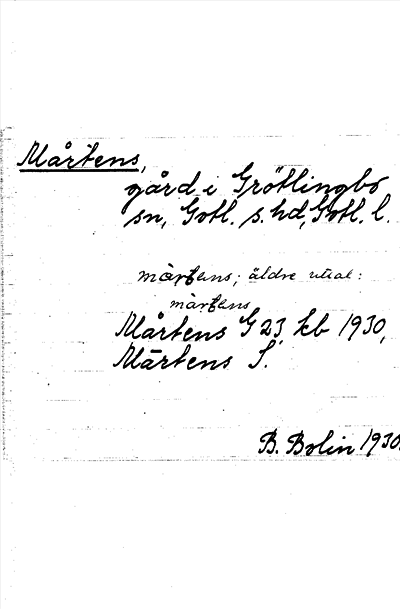 Mårtens,
gård i Grötlingbo
sn, Gotl. s. hd, Gotl. l.
mårtens; äldre uttal:
mårtens
Mårtens G 23, kb 1930,
Mårtens S.
B. Bolin 1930.